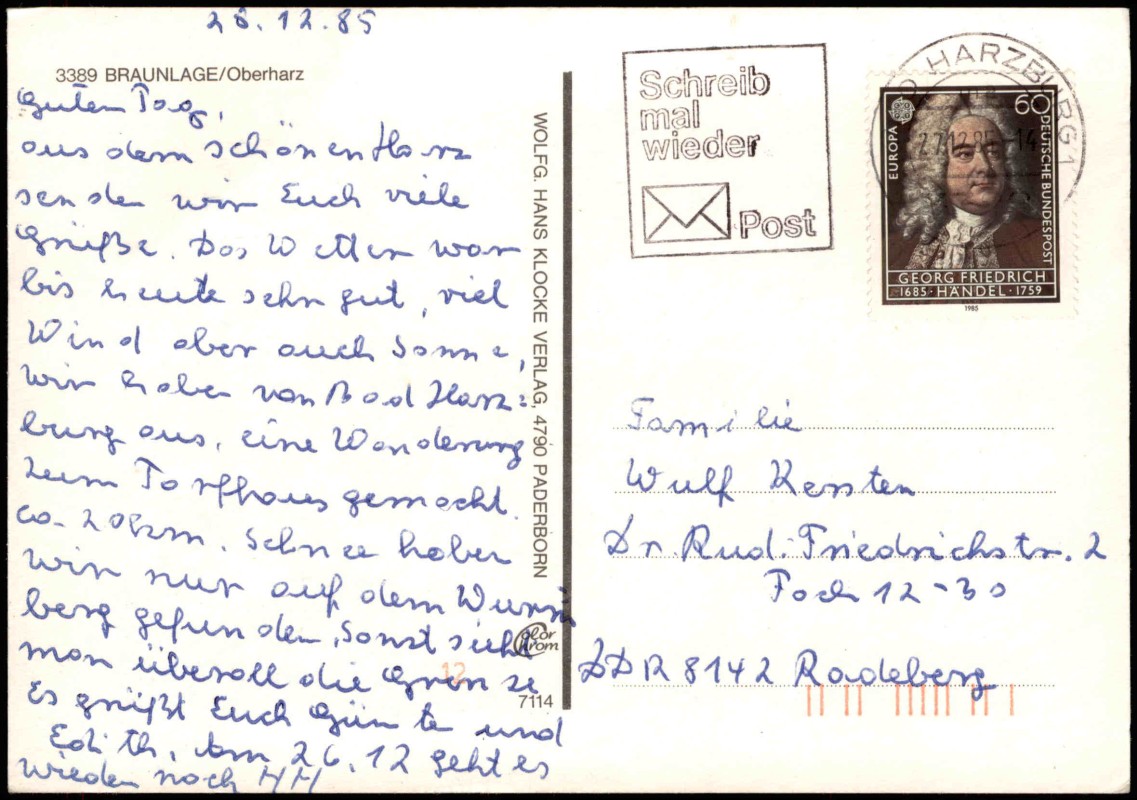 28.12.85
3389 BRAUNLAGE/Oberharz
Guten Tag,
aus dem schönen Harz
senden wir Euch viele
Grüße. Das Wetter war
bis heute sehr gut, viel
Wind aber auch Sonne,
wir haben von Bad Harz=
burg aus, eine Wanderung
zum Torfhaus gemacht.
ca. 20km. Schnee haben
wir nur auf dem Wurm
berg gefunden, Sonst sieht
man überall die Grenze
Es grüßt Euch Günte und
Edith, Am 26.12 geht es
wieder noch HH
WOLFG. HANS KLOCKE VERLAG, 4790 PADERBORN
Color
Chrom
12
7114
Schreib
mal
wieder
Post
BAD HARZBURG 1
27.12.85-14
EUROPA
60
DEUTSCHE BUNDESPOST
GEORG FRIEDRICH
1685·HÄNDEL·1759
1985
Familie
Wulf Kersten
Dr. Rud. Friedrichstr. 2
Fach 12-30
DDR 8142 Radeberg